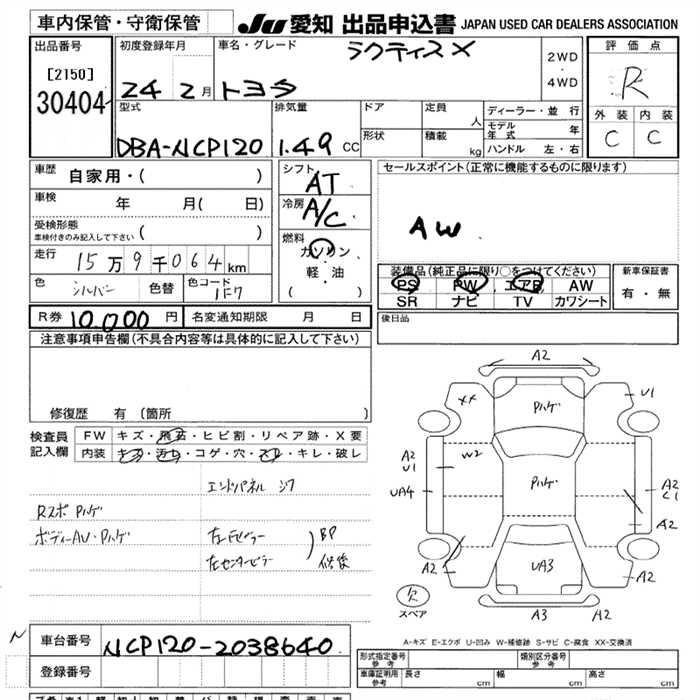 車内保管・守衛保管
JU 愛知 出品申込書 JAPAN USED CAR DEALERS ASSOCIATION
出品番号
[2150]
30404
初度登録年月
24 2月
車名・グレード
ラクティス X
トヨタ
2WD
・
4WD
評価点
R
外装 内装
C C
型式
DBA-NCP120
排気量
1.49 CC
ドア
定員
人
形状
積載
kg
ディーラー・並行
モデル年式 年
ハンドル 左・右
車歴
自家用・( )
車検
年 月( 日)
受検形態
車検付きのみ記入して下さい ( )
走行
15万9千064km
色
シルバー
色替
色コード
1F7
シフト
AT
冷房
A/C
燃料
ガソリン
・
軽・油
( )
セールスポイント(正常に機能するものに限ります)
AW
装備品(純正品に限り○をつけてください)
PS PW エアB AW
SR ナビ TV カワシート
新車保証書
有・無
R券 10,000 円
名変通知期限 月 日
後日品
注意事項申告欄(不具合内容等は具体的に記入して下さい)
修復歴 有 (箇所 )
検査員記入欄
FW キズ・飛石・ヒビ割・リペア跡・X要
内装 キズ・汚レ・コゲ・穴・スレ・キレ・破レ
エンドパネル シワ
Rスポ Pハゲ
ボディーAU・Pハゲ
左Fピラー
左センターピラー
BP
修後
A2
XX
Pハゲ
U1
A2
U1
W2
UA4
Pハゲ
A2
C1
A2
A2
UA3
A2
欠
スペア
A3
A2
A-キズ E-エクボ U-凹み W-補修跡 S-サビ C-腐食 XX-交換済
N
車台番号
NCP120-2038640
登録番号
形式指定番号
参考
類別区分番号
参考
車庫証明用
参考
長さ cm
幅 cm
高さ cm